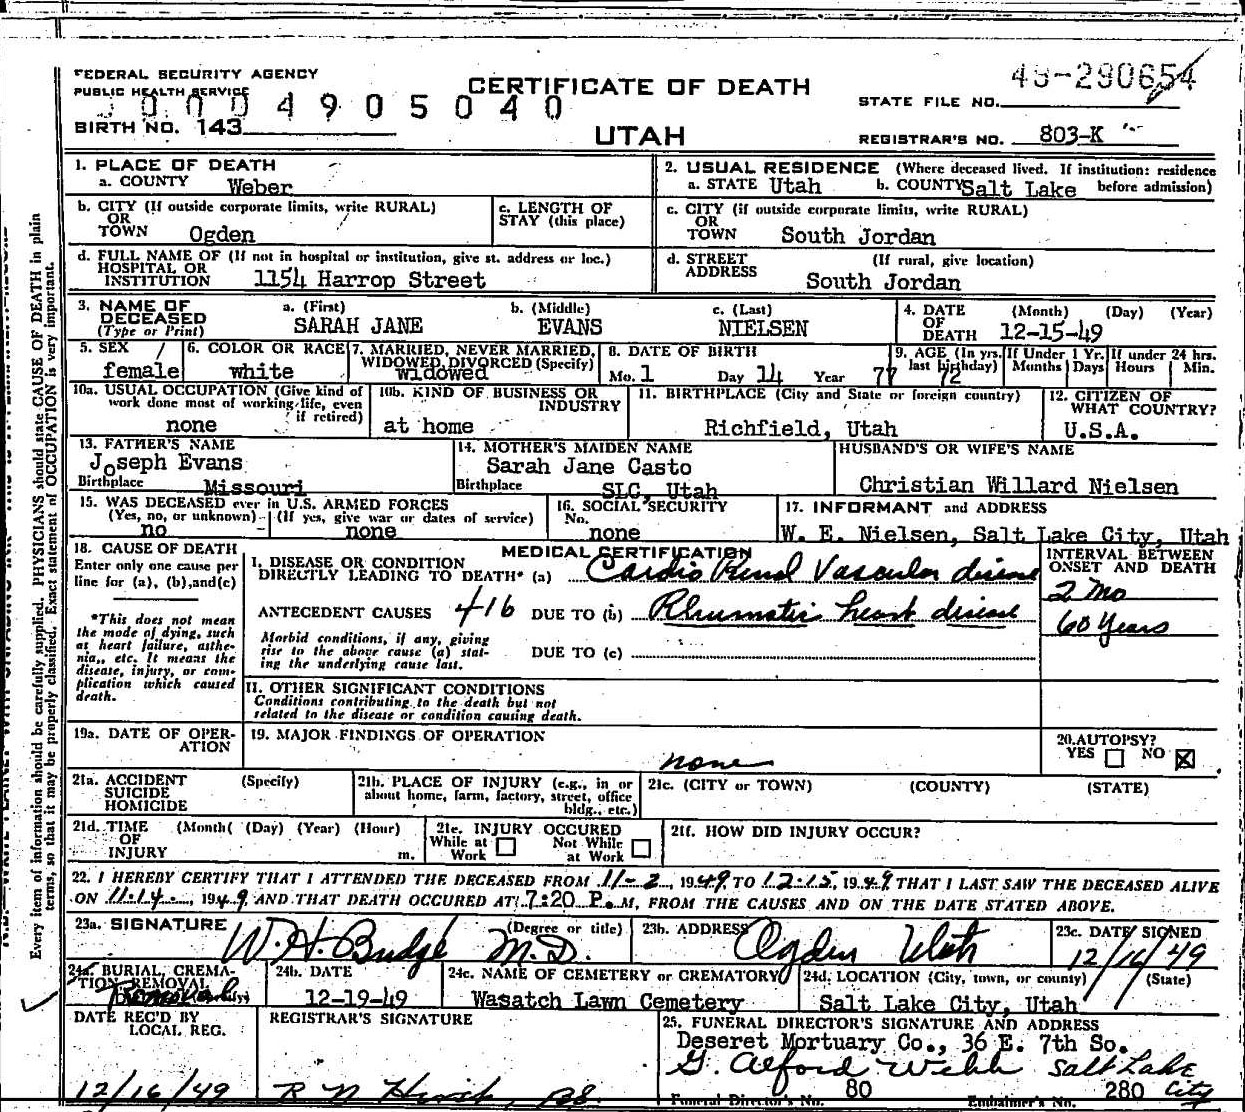 FEDERAL SECURITY AGENCY
PUBLIC HEALTH SERVICE
CERTIFICATE OF DEATH
49-290654
STATE FILE NO.
0004905040
BIRTH NO. 143
UTAH
REGISTRAR'S NO. 803-K
1. PLACE OF DEATH
a. COUNTY Weber
2. USUAL RESIDENCE (Where deceased lived. If institution: residence before admission)
a. STATE Utah b. COUNTY Salt Lake
b. CITY (If outside corporate limits, write RURAL)
OR
TOWN Ogden
c. LENGTH OF
STAY (this place)
c. CITY (if outside corporate limits, write RURAL)
OR
TOWN South Jordan
d. FULL NAME OF (If not in hospital or institution, give st. address or loc.)
HOSPITAL OR
INSTITUTION 1154 Harrop Street
d. STREET (If rural, give location)
ADDRESS South Jordan
3. NAME OF
DECEASED
(Type or Print)
a. (First) b. (Middle) c. (Last)
SARAH JANE EVANS NIELSEN
4. DATE (Month) (Day) (Year)
OF
DEATH 12-15-49
5. SEX
female
6. COLOR OR RACE
white
7. MARRIED, NEVER MARRIED,
WIDOWED, DIVORCED (Specify)
widowed
8. DATE OF BIRTH
Mo. 1 Day 14 Year 77
9. AGE (In yrs. last birthday)
72
If Under 1 Yr.
Months Days
If under 24 hrs.
Hours Min.
10a. USUAL OCCUPATION (Give kind of
work done most of working life, even
if retired)
none
10b. KIND OF BUSINESS OR
INDUSTRY
at home
11. BIRTHPLACE (City and State or foreign country)
Richfield, Utah
12. CITIZEN OF
WHAT COUNTRY?
U.S.A.
13. FATHER'S NAME
Joseph Evans
Birthplace Missouri
14. MOTHER'S MAIDEN NAME
Sarah Jane Casto
Birthplace SLC, Utah
HUSBAND'S OR WIFE'S NAME
Christian Willard Nielsen
15. WAS DECEASED ever in U.S. ARMED FORCES
(Yes, no, or unknown) (If yes, give war or dates of service)
no none
16. SOCIAL SECURITY
No.
none
17. INFORMANT and ADDRESS
W. E. Nielsen, Salt Lake City, Utah
18. CAUSE OF DEATH
Enter only one cause per
line for (a), (b), and (c)
*This does not mean
the mode of dying, such
as heart failure, asthe-
nia, etc. It means the
disease, injury, or com-
plication which caused
death.
MEDICAL CERTIFICATION
I. DISEASE OR CONDITION
DIRECTLY LEADING TO DEATH* (a) Cardio Renal Vascular disease
ANTECEDENT CAUSES 416 DUE TO (b) Rhumatic heart disease
Morbid conditions, if any, giving
rise to the above cause (a) stat-
ing the underlying cause last.
DUE TO (c)
INTERVAL BETWEEN
ONSET AND DEATH
2 Mo
60 Years
II. OTHER SIGNIFICANT CONDITIONS
Conditions contributing to the death but not
related to the disease or condition causing death.
19a. DATE OF OPER-
ATION
19. MAJOR FINDINGS OF OPERATION
none
20. AUTOPSY?
YES NO
21a. ACCIDENT (Specify)
SUICIDE
HOMICIDE
21b. PLACE OF INJURY (e.g., in or
about home, farm, factory, street, office
bldg., etc.)
21c. (CITY or TOWN) (COUNTY) (STATE)
21d. TIME (Month( (Day) (Year) (Hour)
OF
INJURY m.
21e. INJURY OCCURED
While at
Work
Not While
at Work
21f. HOW DID INJURY OCCUR?
22. I HEREBY CERTIFY THAT I ATTENDED THE DECEASED FROM 11-2, 1949 TO 12-15, 1949 THAT I LAST SAW THE DECEASED ALIVE
ON 11-14, 1949 AND THAT DEATH OCCURED AT 7:20 P.M, FROM THE CAUSES AND ON THE DATE STATED ABOVE.
23a. SIGNATURE (Degree or title)
W. H. Budge M.D.
23b. ADDRESS
Ogden Utah
23c. DATE SIGNED
12/16/49
24a. BURIAL, CREMA-
TION, REMOVAL
Removal
24b. DATE
12-19-49
24c. NAME OF CEMETERY or CREMATORY
Wasatch Lawn Cemetery
24d. LOCATION (City, town, or county) (State)
Salt Lake City, Utah
DATE REC'D BY
LOCAL REG.
12/16/49
REGISTRAR'S SIGNATURE
25. FUNERAL DIRECTOR'S SIGNATURE AND ADDRESS
Deseret Mortuary Co., 36 E. 7th So.
G. Alford Webb Salt Lake
City
80 280
Funeral Director's No. Embalmer's No.
Every item of information should be carefully supplied. PHYSICIANS should state CAUSE OF DEATH in plain
terms, so that it may be properly classified. Exact statement of OCCUPATION is very important.